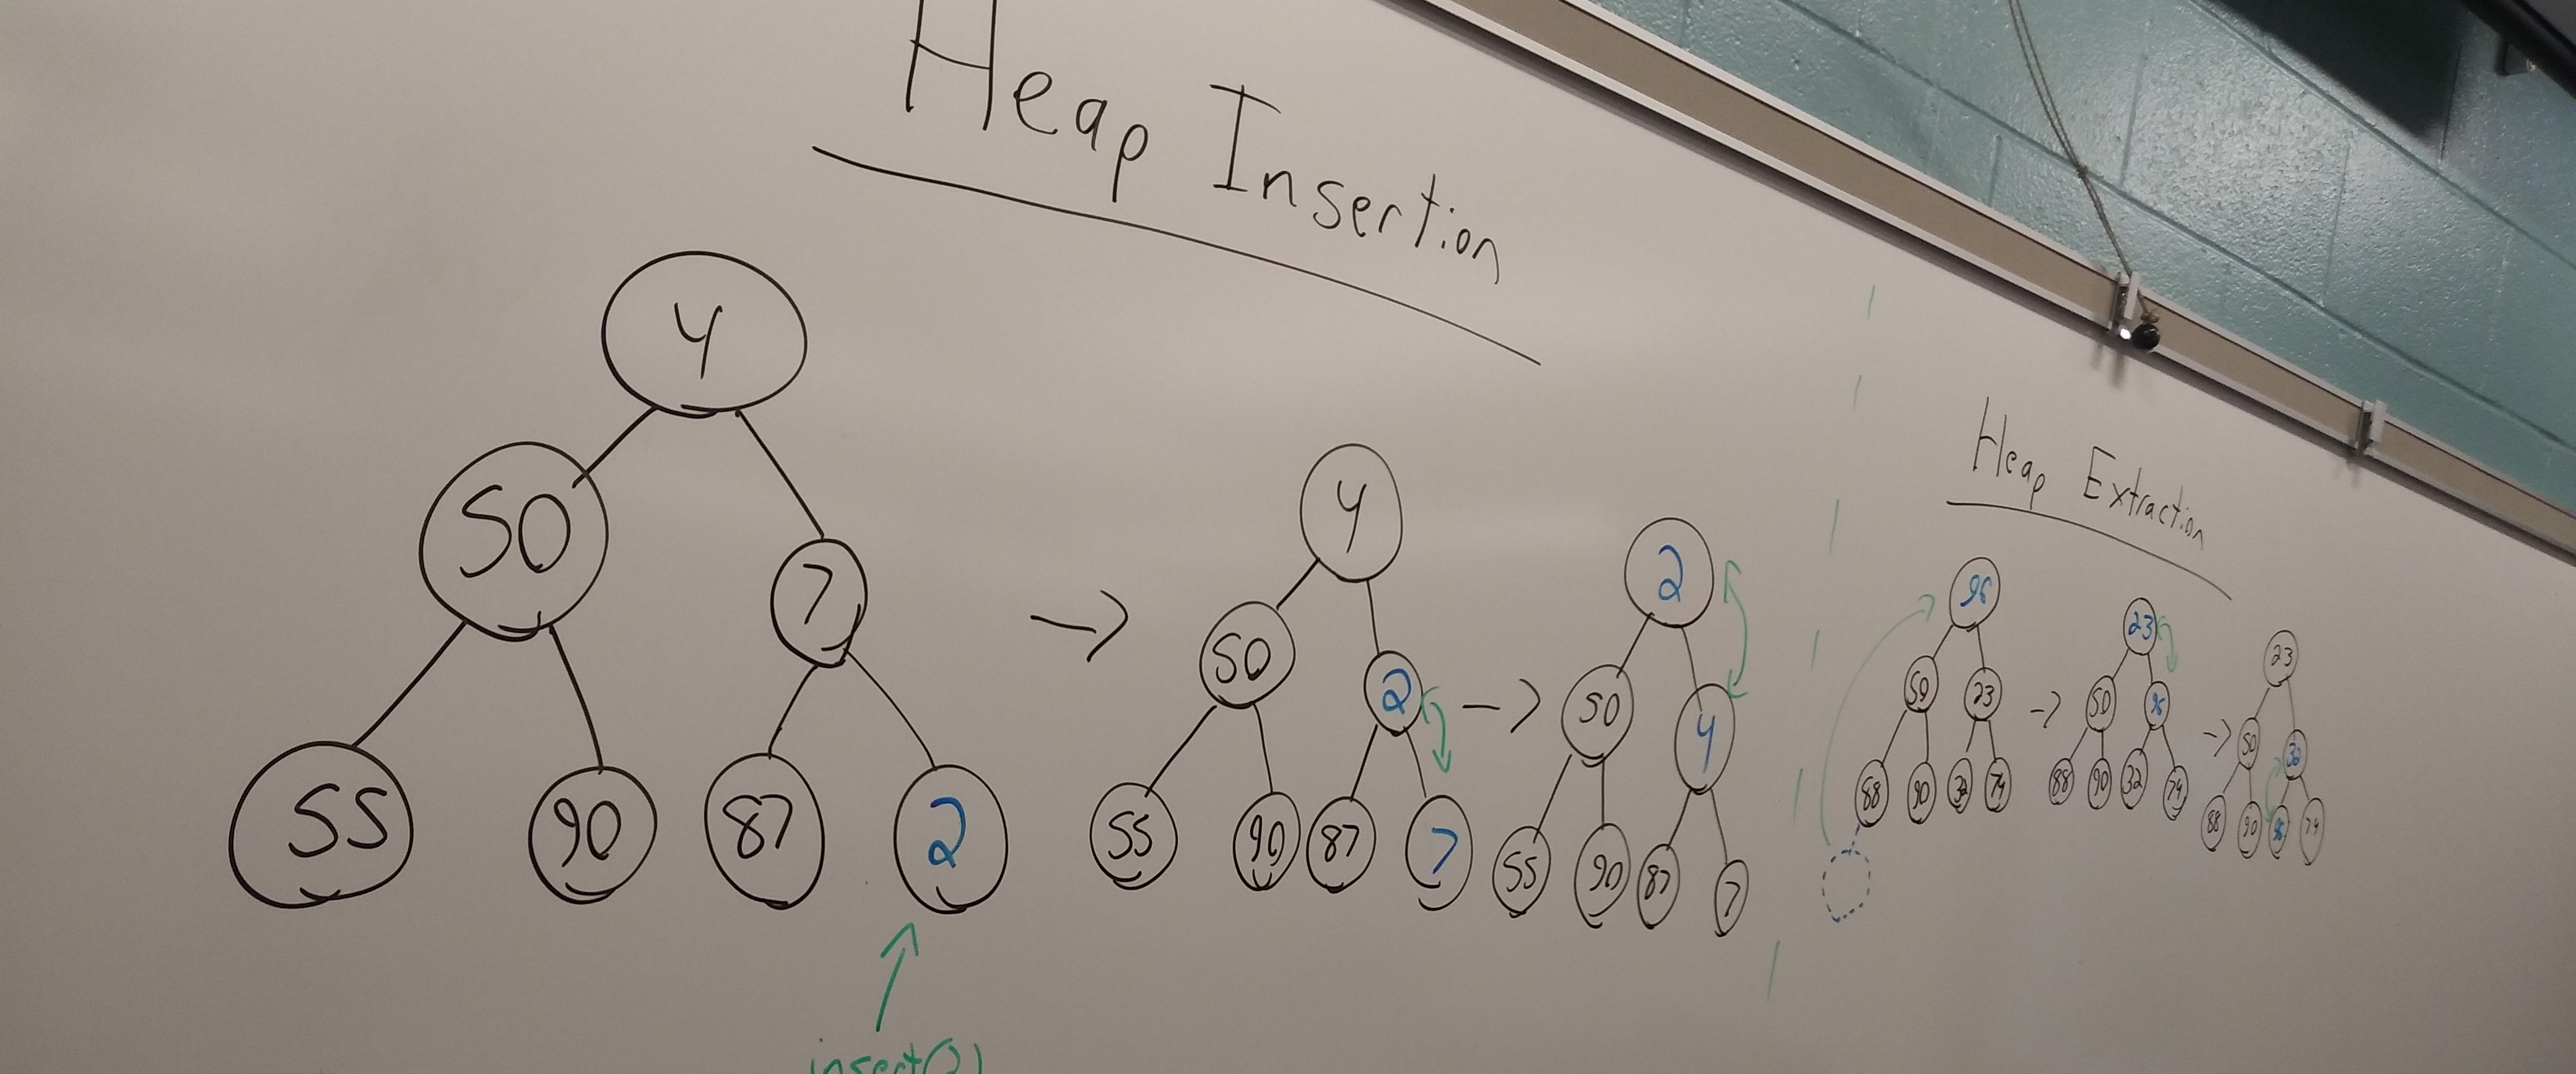 Heap Insertion
4
50 7
55 90 87 2
insert(2)
->
4
50 2
55 90 87 7
->
2
50 4
55 90 87 7
Heap Extraction
96
50 23
88 90 32 74
->
23
50 96
88 90 32 74
->
23
50 32
88 90 96 74